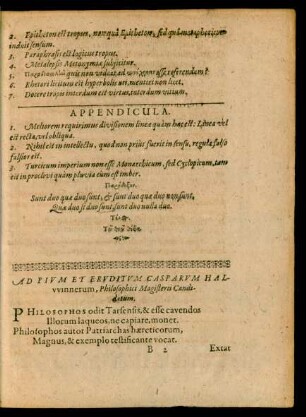 2. Epitheton est tropus, non quâ Epitheton, sed quâ metaphoricum
induit sensum.
3. Paraphrasis est logicus tropus.
4. Metalepsis Metonymiæ subjicitur.
5. quis non videat, ad referendam?
6. Elevari licitum est hyperbolis uti, mentiri non licet.
7. Docere tropus interdum est virtus, interdum vitium.
APPENDICULA.
1. Meliorem requirimus divisionem lineæ quàm hæc est: Linea vel
est recta, vel obliqua.
2. Nihil est in intellectu, quod non prius fuerit in sensu, regula falsò
falsior est.
3. Turcicum imperium non esse Monarchicum, sed Cyclopicum, tam
est in proclivi quàm pluviâ cum est imber.
Sunt duo quæ duo sunt, & sunt duo quæ duo non sunt,
Quæ duo si duo sunt, sunt duo nulla duo.
AD PIVM ET ERVDITVM CASPARVM HAL-
vvinnerum, Philosophici Magisterii Candi-
datum.
PHILOSOPHOS odit Tarsensis, & esse cavendos
Illorum laqueos, ne capiare, monet.
Philosophos autor Patriarchas hæreticorum,
Magnus, & exemplo testificante vocat.
B 2 Extat